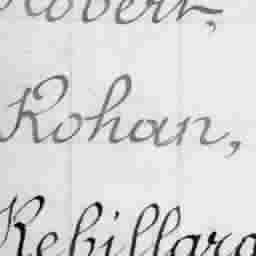 Robert,
Rohan,
Rebillard